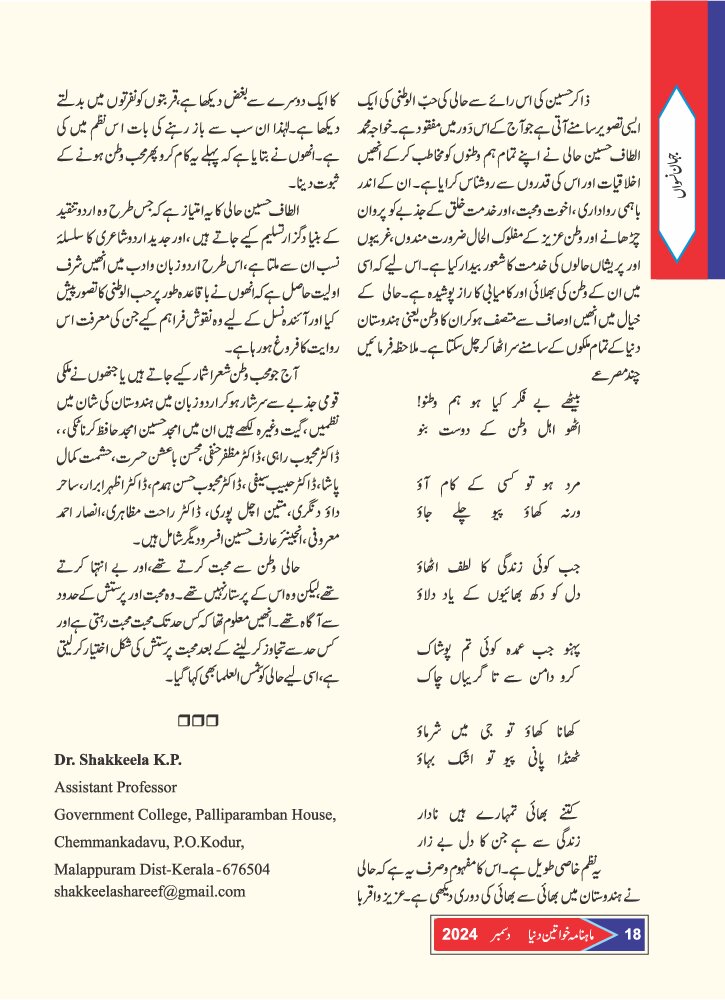 جہان نسواں
ذاکر حسین کی اس رائے سے حالی کی حبّ الوطنی کی ایک
ایسی تصویر سامنے آتی ہے جو آج کے اس دَور میں مفقود ہے۔ خواجہ محمد
الطاف حسین حالی نے اپنے تمام ہم وطنوں کو مخاطب کر کے انھیں
اخلاقیات اور اس کی قدروں سے روشناس کرایا ہے۔ ان کے اندر
باہمی رواداری، اخوت و محبت، اور خدمت خلق کے جذبے کو پروان
چڑھانے اور وطن عزیز کے مفلوک الحال ضرورت مندوں، غریبوں
اور پریشاں حالوں کی خدمت کا شعور بیدار کیا ہے۔ اس لیے کہ اسی
میں ان کے وطن کی بھلائی اور کامیابی کا راز پوشیدہ ہے۔ حالی کے
خیال میں انھیں اوصاف سے متصف ہو کر ان کا وطن یعنی ہندوستان
دنیا کے تمام ملکوں کے سامنے سر اٹھا کر چل سکتا ہے۔ ملاحظہ فرمائیں
چند مصرعے
بیٹھے بے فکر کیا ہو ہم وطنو!
اٹھو اہل وطن کے دوست بنو
مرد ہو تو کسی کے کام آؤ
ورنہ کھاؤ پیو چلے جاؤ
جب کوئی زندگی کا لطف اٹھاؤ
دل کو دکھ بھائیوں کے یاد دلاؤ
پہنو جب عمدہ کوئی تم پوشاک
کرو دامن سے تا گریباں چاک
کھانا کھاؤ تو جی میں شرماؤ
ٹھنڈا پانی پیو تو اشک بہاؤ
کتنے بھائی تمہارے ہیں نادار
زندگی سے ہے جن کا دل بے زار
یہ نظم خاصی طویل ہے۔ اس کا مفہوم و صرف یہ ہے کہ حالی
نے ہندوستان میں بھائی سے بھائی کی دوری دیکھی ہے۔ عزیز و اقربا
کا ایک دوسرے سے بغض دیکھا ہے، قربتوں کو نفرتوں میں بدلتے
دیکھا ہے۔ لہٰذا ان سب سے باز رہنے کی بات اس نظم میں کی
ہے۔ انھوں نے بتایا ہے کہ پہلے یہ کام کرو پھر محب وطن ہونے کے
ثبوت دینا۔
الطاف حسین حالی کا یہ امتیاز ہے کہ جس طرح وہ اردو تنقید
کے بنیاد گزار تسلیم کیے جاتے ہیں، اور جدید اردو شاعری کا سلسلۂ
نسب ان سے ملتا ہے، اس طرح اردو زبان و ادب میں انھیں شرف
اولیت حاصل ہے کہ انھوں نے باقاعدہ طور پر حب الوطنی کا تصور پیش
کیا اور آئندہ نسل کے لیے وہ نقوش فراہم کیے جن کی معرفت اس
روایت کا فروغ ہو رہا ہے۔
آج جو محب وطن شعرا شمار کیے جاتے ہیں یا جنھوں نے ملکی
قومی جذبے سے سرشار ہو کر اردو زبان میں ہندوستان کی شان میں
نظمیں، گیت وغیرہ لکھے ہیں ان میں امجد حسین امجد حافظ کرناٹکی،،
ڈاکٹر محبوب راہی، ڈاکٹر مظفر حنفی، محسن باعشن حسرت، حشمت کمال
پاشا، ڈاکٹر حبیب سیفی، ڈاکٹر محبوب حسن ہمدم، ڈاکٹر اظہر ابرار، ساحر
داؤد نگری، متین اچل پوری، ڈاکٹر راحت مظاہری، انصار احمد
معروفی، انجینئر عارف حسین افسر و دیگر شامل ہیں۔
حالی وطن سے محبت کرتے تھے، اور بے انتہا کرتے
تھے، لیکن وہ اس کے پرستار نہیں تھے۔ وہ محبت اور پرستش کے حدود
سے آگاہ تھے۔ انھیں معلوم تھا کہ کس حد تک محبت محبت رہتی ہے اور
کس حد سے تجاوز کر لینے کے بعد محبت پرستش کی شکل اختیار کر لیتی
ہے، اسی لیے حالی کو شمس العلما بھی کہا گیا۔
Dr. Shakkeela K.P.
Assistant Professor
Government College, Palliparamban House,
Chemmankadavu, P.O.Kodur,
Malappuram Dist-Kerala-676504
shakkeelashareef@gmail.com
18 ماہنامہ خواتین دنیا دسمبر 2024